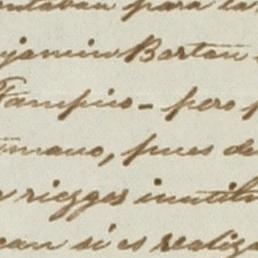 ntaban para la
njamin Bartau
Tampico - pero p
umano, pues de
riezgos inutil
ean si es realiza